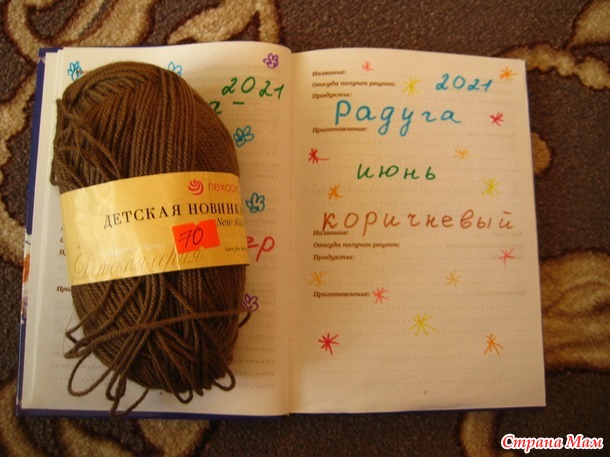 2021
г-
пехорск
ДЕТСКАЯ НОВИНКА
New Ki
70
Детская серия
ер
Название:
Откуда получен рецепт:
2021
Продукты:
Радуга
Приготовление:
июнь
коричневый
Название:
Откуда получен рецепт:
Продукты:
Приготовление:
Страна Мам